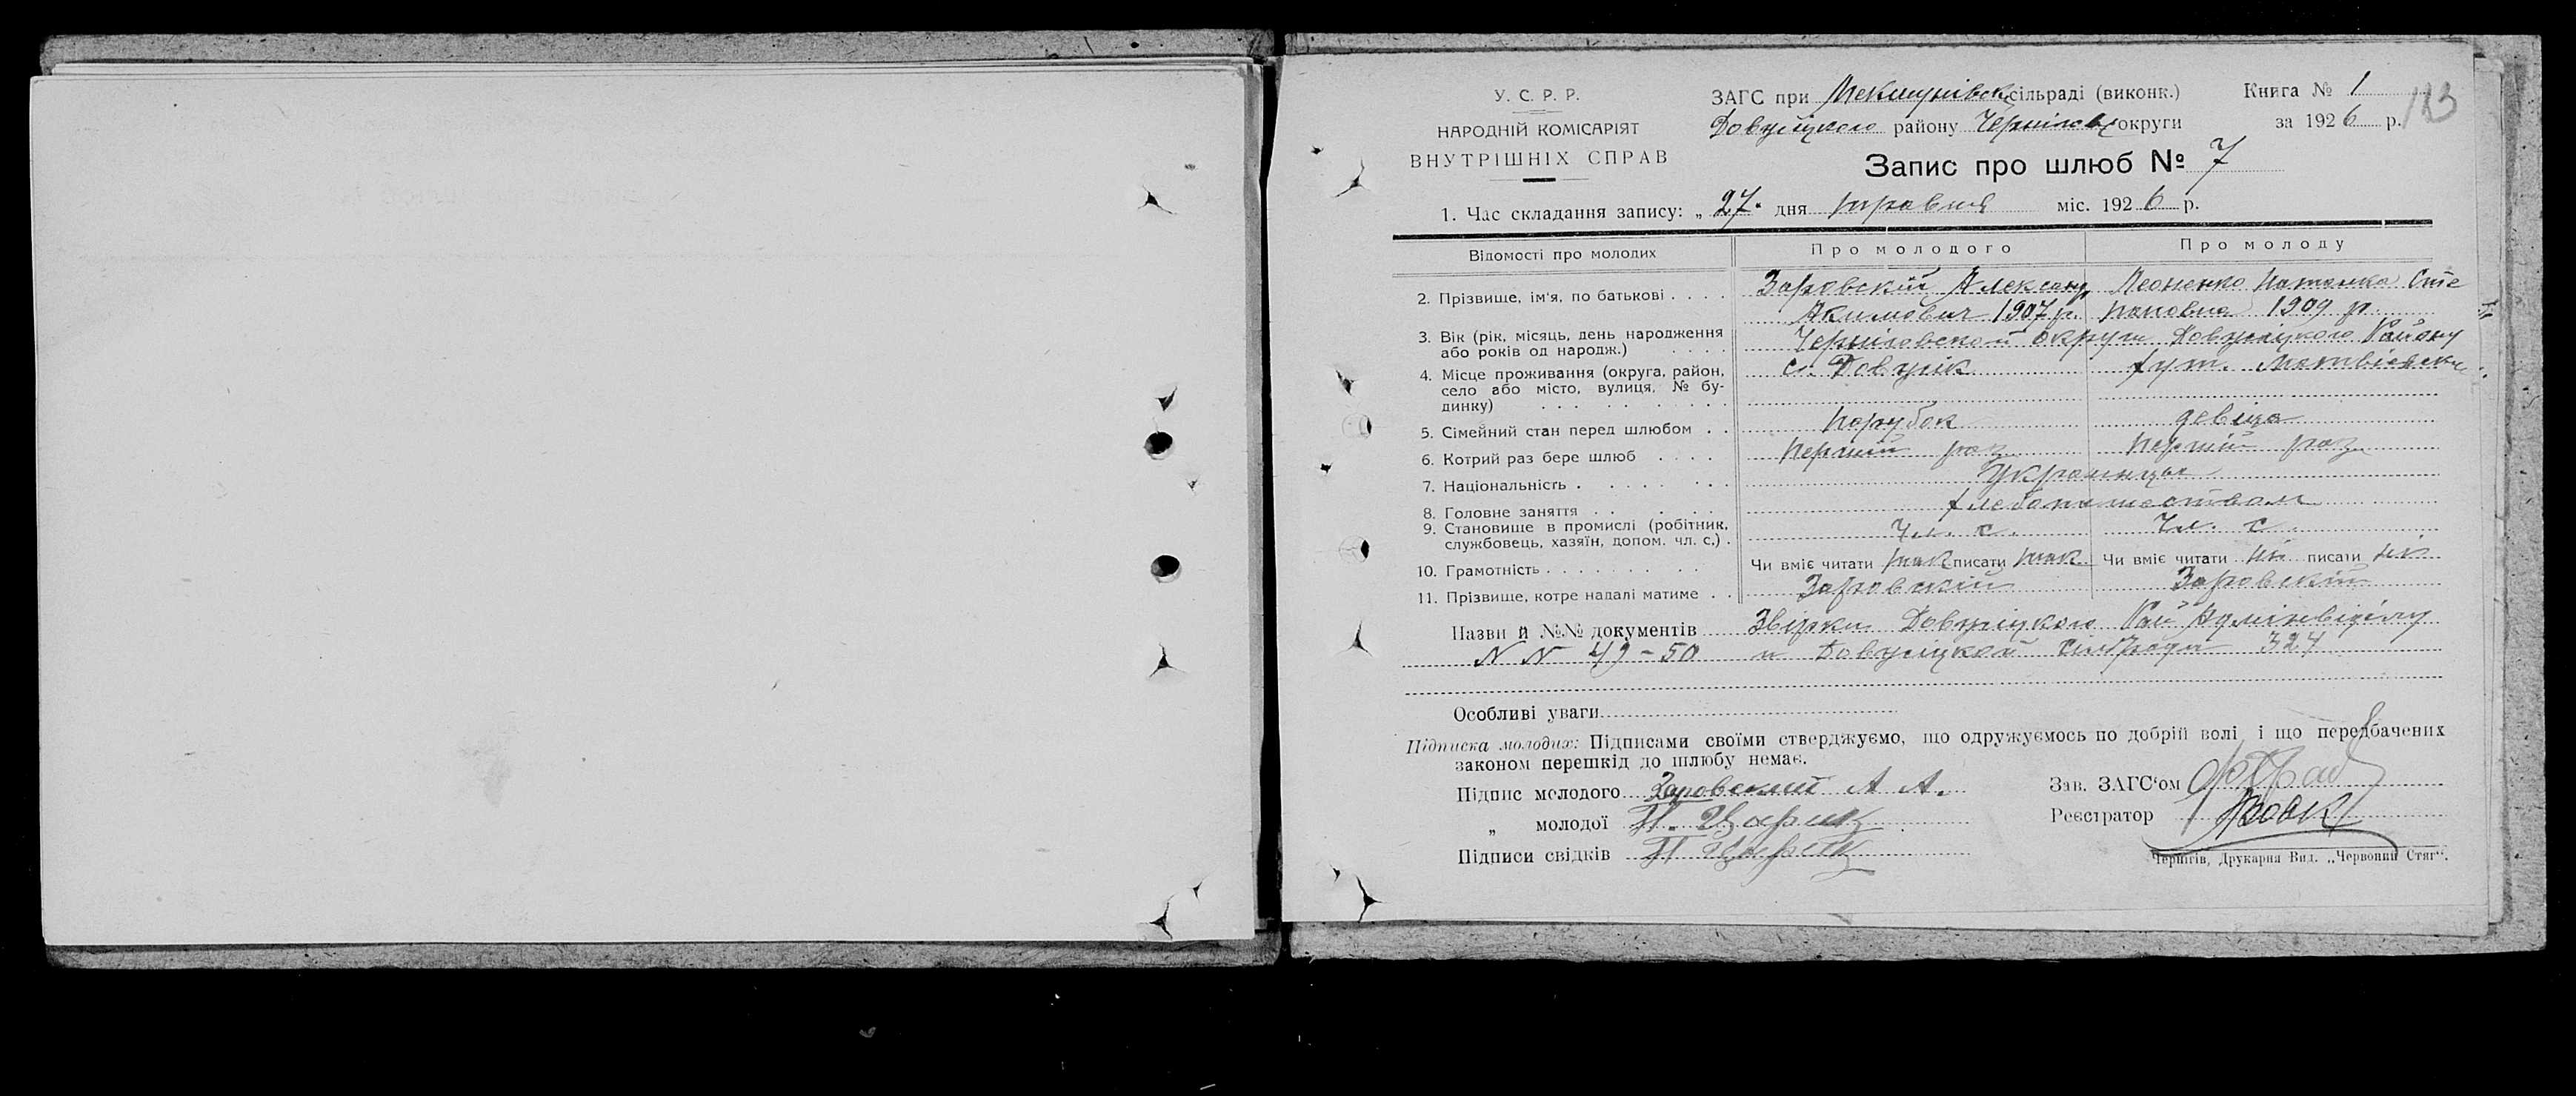 У. С. Р. Р.
НАРОДНІЙ КОМІСАРІЯТ
ВНУТРІШНІХ СПРАВ
ЗАГС при сільраді (виконк.)
району округи
Книга № 1
за 1926 р.
Запис про шлюб № 7
1. Час складання запису: „27" дня травня міс. 1926 р.
Відомості про молодих
Про молодого
Про молоду
2. Прізвище, ім'я, по батькові . . . .
Заровский Александ
Леоненко Наталка Сте
Акимович 1907 р.
пановна 1909 р.
3. Вік (рік, місяць, день народження
або років од народж.) . . . .
Черніговской округи Довжицкого Району
4. Місце проживання (округа, район,
село або місто, вулиця, № бу-
динку) . . . . . . . . .
с. Довжик
хут. Матвієвск
5. Сімейний стан перед шлюбом . .
парубок
девіца
6. Котрий раз бере шлюб . . . .
перший раз
перший раз
7. Національність . . . . . . . .
Украинцы
8. Головне заняття . . . . . .
хлебопашеством
9. Становище в промислі (робітник,
службовець, хазяїн, допом. чл. с.) .
Чл. с.
Чл. с.
10. Грамотність . . . . . . . .
Чи вміє читати так писати так
Чи вміє читати ні писати ні
11. Прізвище, котре надалі матиме . .
Заровский
Заровский
Назви й №№ документів Довжицкого Рай Адмінвідділу
N N 49-50 и Довжицкой Сільради 324
Особливі уваги
Підписка молодих: Підписами своїми стверджуємо, що одружуємось по добрій волі і що передбачених
законом перешкід до шлюбу немає.
Підпис молодого Заровский А А.
„ молодої П. Царик
Підписи свідків П Царик
Зав. ЗАГС'ом
Реєстратор
Чернігів, Друкарня Вид. „Червоний Стяг".